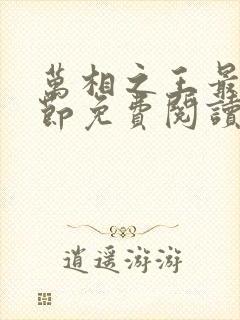 萬相之王最
節免費閱讀
逍遥游游